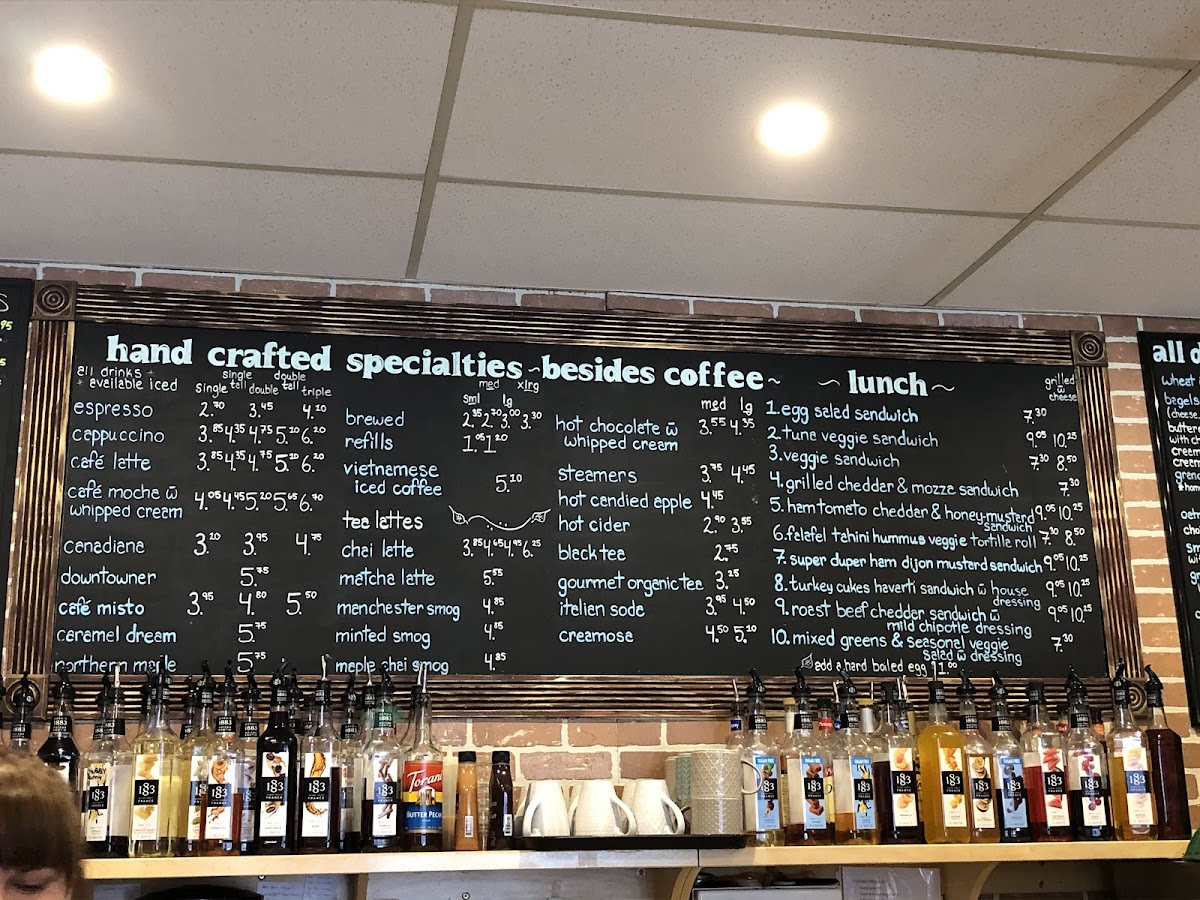 hand crafted specialties ~ besides coffee ~
~ lunch ~
all drinks +
+ available iced
single single tall double double tall triple
espresso 2.70 3.45 4.10
cappuccino 3.85 4.35 4.75 5.10 6.20
café latte 3.85 4.35 4.75 5.10 6.20
café mocha w̄
whipped cream 4.05 4.45 5.20 5.65 6.70
canadiana 3.20 3.95 4.75
downtowner 5.75
café misto 3.95 4.80 5.50
caramel dream 5.75
northern maple 5.75
sml med lg xlrg
brewed 2.35 2.70 3.00 3.30
refills 1.05 1.20
vietnamese
iced coffee 5.10
tea lattes
chai latte 3.85 4.65 4.95 6.25
matcha latte 5.55
manchester smog 4.85
minted smog 4.85
maple chai smog 4.85
med lg
hot chocolate w̄ 3.55 4.35
whipped cream
steamers 3.75 4.45
hot candied apple 4.45
hot cider 2.90 3.55
black tea 2.75
gourmet organic tea 3.25
italian soda 3.95 4.50
creamosa 4.50 5.10
grilled
w̄
cheese
1. egg salad sandwich 7.30
2. tuna veggie sandwich 9.05 10.25
3. veggie sandwich 7.30 8.50
4. grilled chedder & mozza sandwich 7.30
5. ham tomato chedder & honey-mustard 9.05 10.25
sandwich
6. falafel tahini hummus veggie tortilla roll 7.30 8.50
7. super duper ham dijon mustard sandwich 9.05 10.25
8. turkey cukes havarti sandwich w̄ house 9.05 10.25
dressing
9. roast beef chedder sandwich w̄ 9.05 10.25
mild chipotle dressing
10. mixed greens & seasonal veggie 7.30
salad w̄ dressing
add a hard boiled egg 1.00
all d
wheat
bagels
(cheese
buttere
with c
cream
S
95
1883
Torani
BUTTER PECAN